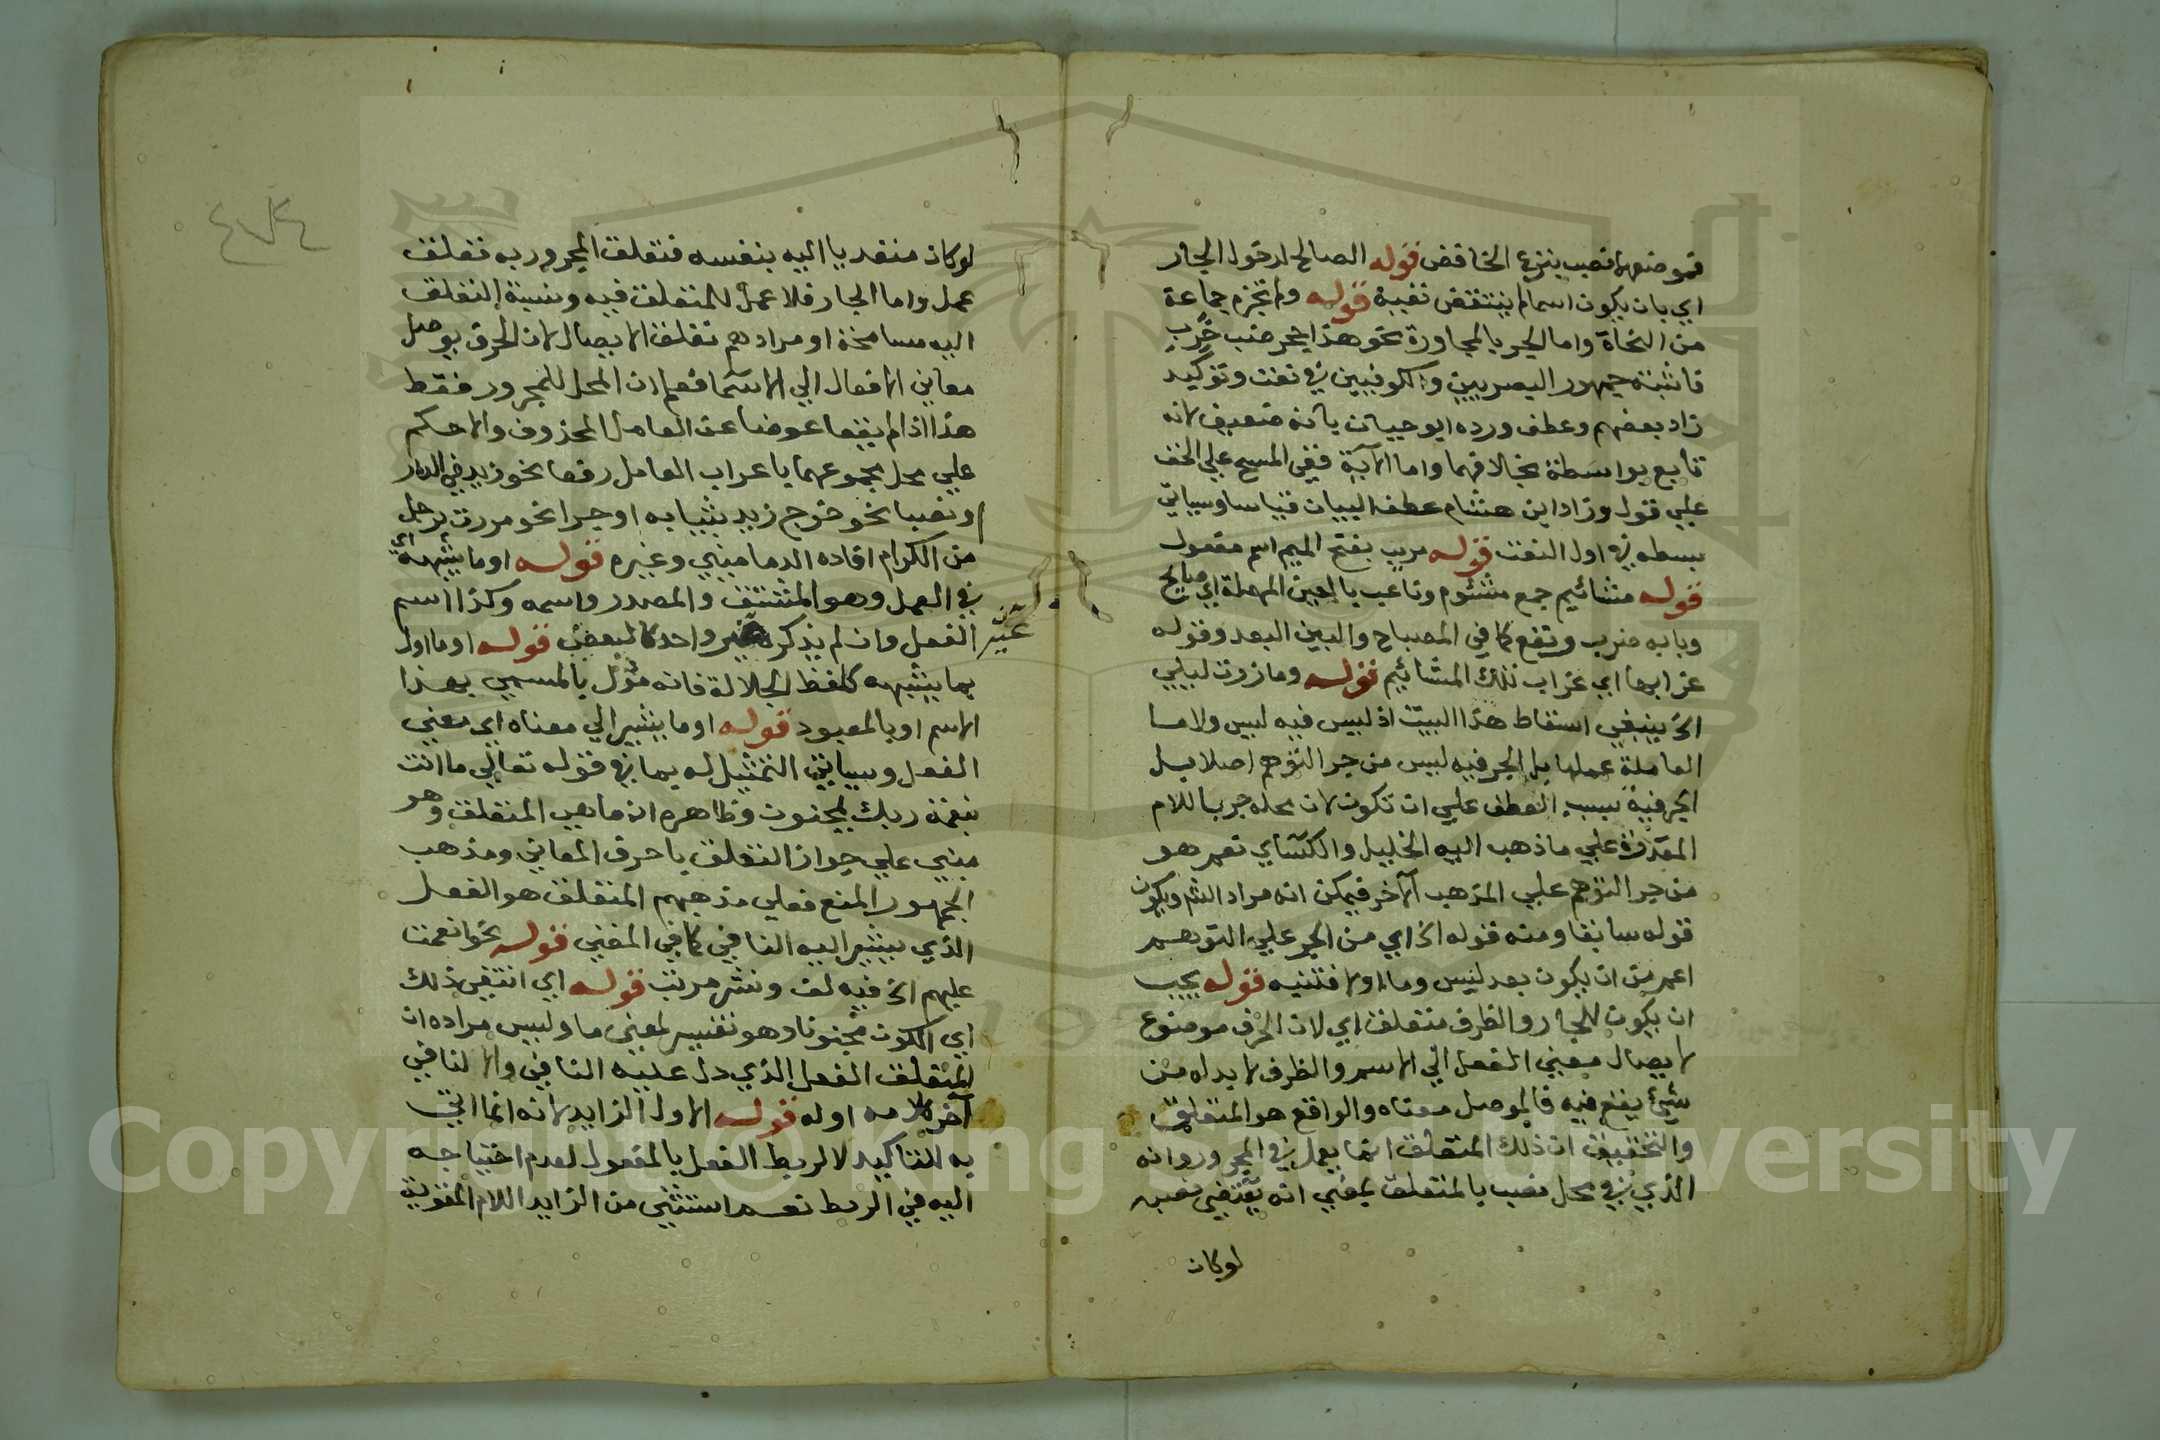 فموضعهما نصب بنزع الخافض قوله الصالح لدخول الجار
اي بان يكون اسما لم ينتقض نفيه قوله ولم تجزم جماعة
من النحاة واما الجر بالمجاورة نحو هذا جحر ضب خرب
فاثبته جمهور البصريين والكوفيين في نعت وتوكيد
زاد بعضهم وعطف ورده ابو حيان بانه ضعيف لانه
تابع بواسطة بخلافهما واما الاية ففي المسح علي الخف
علي قول وزاد ابن هشام عطف البيان قياسا وسياتي
بسطه في اول النعت قوله مريب بفتح الميم اسم مفعول
قوله مشائيم جمع مشئوم وناعب بالعين المهملة اي صايح
وبابه ضرب ونفع كما في المصباح والبين البعد وقوله
غرابها اي غراب تلك المشائيم قوله وما زرت ليلي
الخ ينبغي اسقاط هذا البيت اذ ليس فيه ليس ولا ما
العاملة عملها بل الجر فيه ليس من جر التوهم اصلا بل
الجر فيه بسبب العطف علي ان تكون لان محله جر باللام
المقدرة علي ما ذهب اليه الخليل والكسائي نعم هو
من جر التوهم علي المذهب الآخر فيمكن انه مراد الشم ويكون
قوله سابقا ومنه قوله الخ اي من الجر علي التوهم
اعم من ان يكون بعد ليس وما اولا فتنبه قوله يجب
ان يكون للجار والظرف متعلق اي لان الحرف موضوع
لايصال معني الفعل الي الاسم والظرف لا بد له من
شيئ يقع فيه فالموصل معناه والواقع هو المتعلق
والتحقيق ان ذلك المتعلق انما يعمل في المجرور وانه
الذي في محل نصب بالمتعلق بمعني انه يقتضي نصبه
لوكان
٤٧٤
لوكان متعديا اليه بنفسه فتعلق المجرور به تعلق
عمل واما الجار فلا عمل للمتعلق فيه ونسبة التعلق
اليه مسامحة او مرادهم تعلق الايصال لان الحرف يوصل
معاني الافعال الي الاسما فعلم ان المحل للمجرور فقط
هذا اذا لم يقعا عوضا عن العامل المحذوف والا حكم
علي محل مجموعهما باعراب العامل رفعا نحو زيد في الدار
او نصبا نحو خرج زيد بثيابه او جرا نحو مررت برجل
من الكرام افاده الدماميني وغيره قوله او ما يشبهه اي
في العمل وهو المشتق والمصدر واسمه وكذا اسم
الفعل وان لم يذكره غير واحد كالبعض قوله او ما اول
عنن
غير
بما يشبهه كلفظ الجلالة فانه مؤل بالمسمي بهذا
الاسم او بالمعبود قوله او ما يشير الي معناه اي معني
الفعل وسياتي التمثيل له بما في قوله تعالي ما انت
بنعمة ربك بمجنون وظاهره ان ما هي المتعلق وهو
مبني علي جواز التعلق باحرف المعاني ومذهب
الجمهور المنع فعلي مذهبهم المتعلق هو الفعل
الذي يشير اليه النافي كما في المغني قوله نحو انعمت
عليهم الخ فيه لف ونشر مرتب قوله اي انتفي ذلك
اي الكون مجنونا وهو تفسير لمعني ما وليس مراده ان
المتعلق الفعل الذي دل عليه النافي والا لنافي
آخر كلامه اوله قوله الاول الزايد لانه انما اتي
به للتاكيد لا لربط الفعل بالمفعول لعدم احتياجه
اليه في الربط نعم استثني من الزايد اللام المقوية